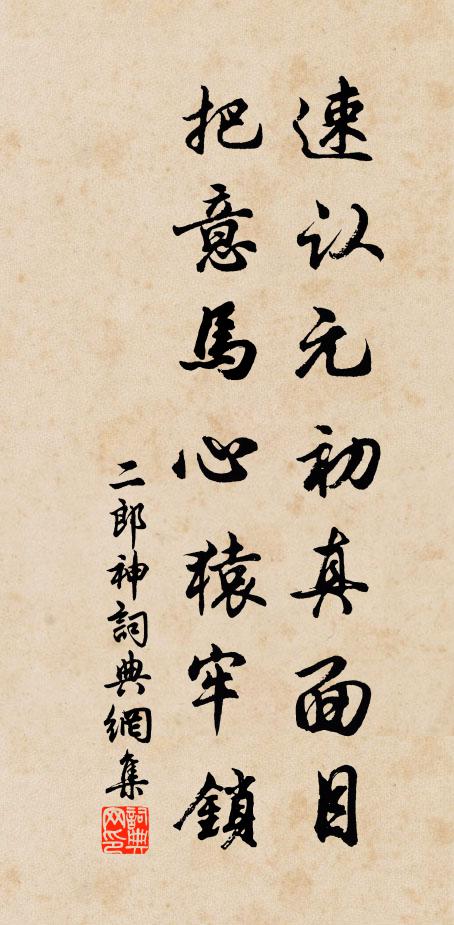 速认元初真面目
把意馬心猿牢鎖
二郎神詞典網集
詞典网印